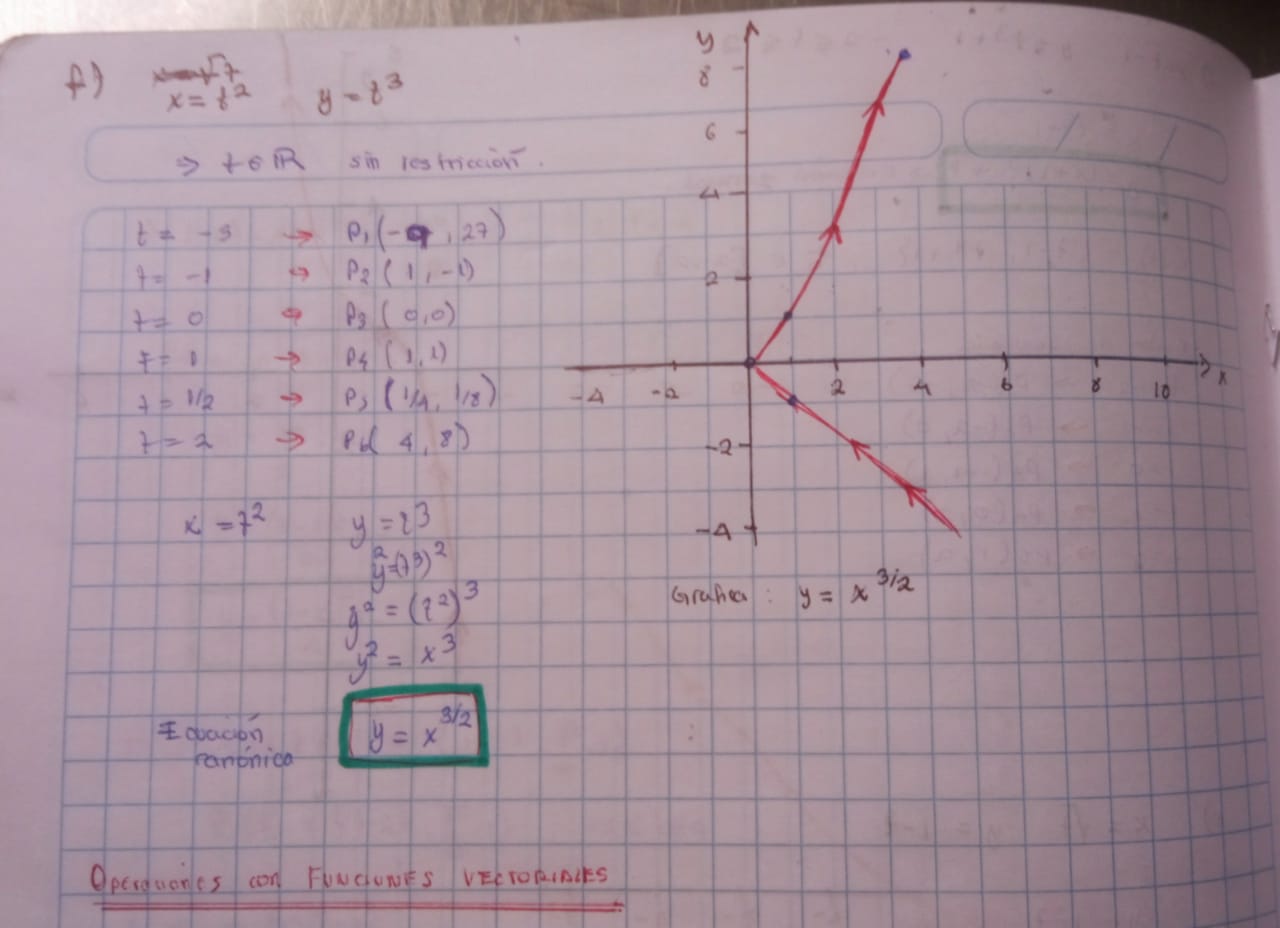 f) x = √t
x = t² y = t³
⇒ t ∈ ℝ sin restricción.
t = -3 → P₁(-9, 27)
t = -1 → P₂(1, -1)
t = 0 → P₃(0,0)
t = 1 → P₄(1, 1)
t = 1/2 → P₅(1/4, 1/8)
t = 2 → P₆(4, 8)
x = t² y = t³
y² = (t³)²
y² = (t²)³
y² = x³
Ecuación canónica y = x^3/2
y
8
6
4
2
-4 -2 2 4 6 8 10 x
-2
-4
Grafica : y = x^3/2
OPERACIONES CON FUNCIONES VECTORIALES